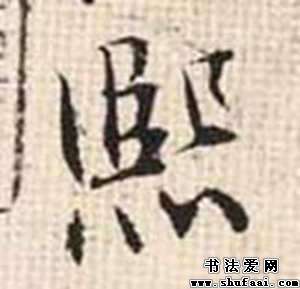 熙
书法爱网
www.shufaai.com